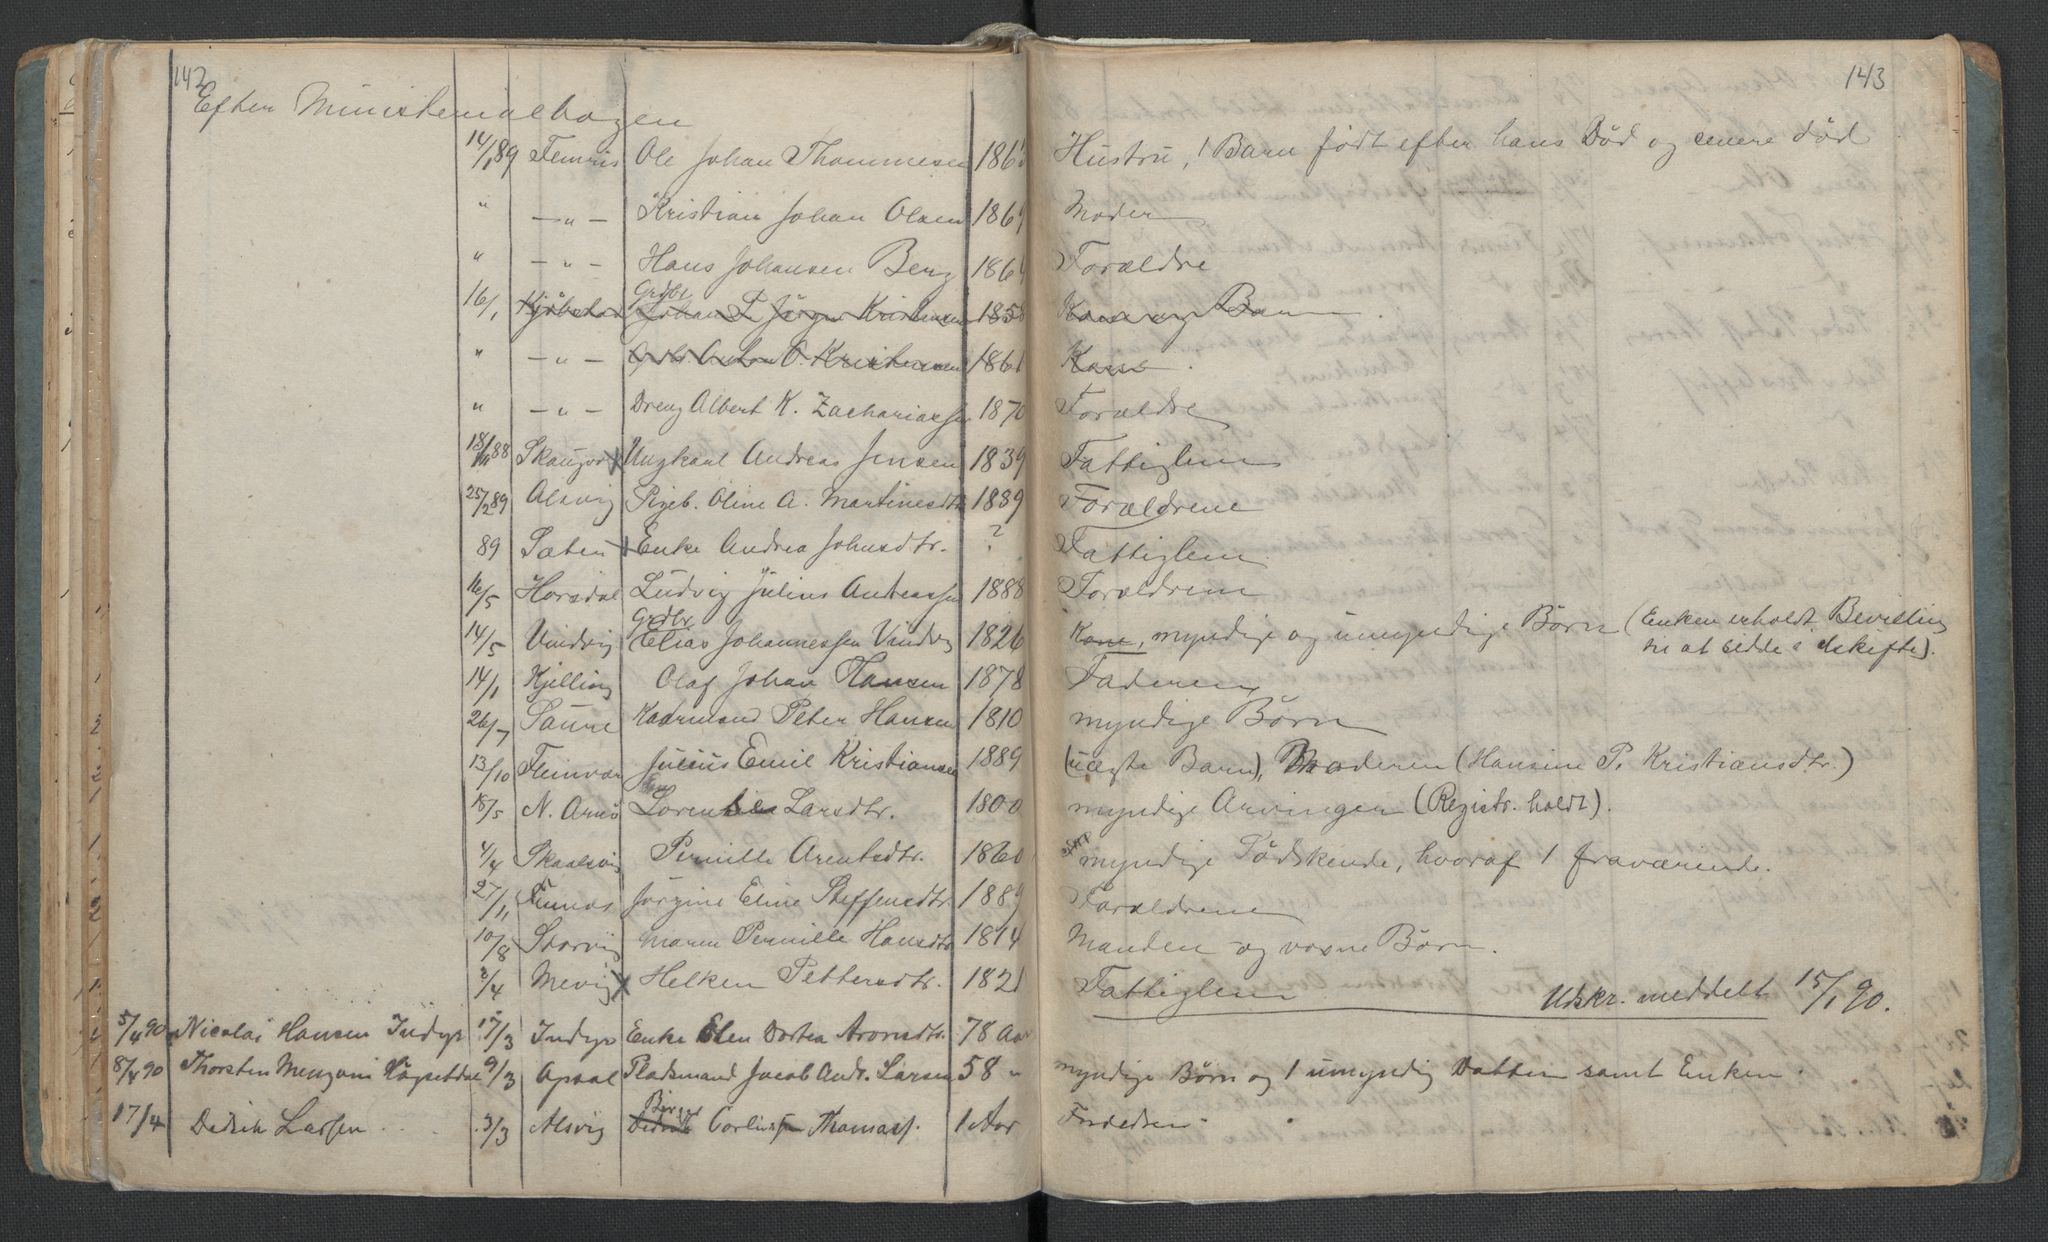 142
143
Efter Ministerialbogen
14/1 89 Femris Ole Johan Thommesen 186 Hustru, 1 Barn født efter hans Død og senere død
" — " — Kristian Johan Olsen 1869 Moder
" — " — Hans Johansen Berg 1864 Forældre
16/1 Kjøbstad Grdbr Johan P. Jörgen Kristensen 1858 Kone og Barn.
" — " — Grdbr. Anton O. Kristensen 1861 Kone.
" — " — Dreng Albert K. Zachariassen 1870 Forældre
88 Skaugvo x Ungkarl Andreas Jensen 1839 Fattiglem
25/2 89 Alsvig Pigeb. Oline A. Martinesdtr 1889 Forældrene
89 Sæten x Enke Andrea Johnsdtr. ? Fattiglem
16/5 Horsdal Ludvig Julius Andreassen 1888 Forældrene
14/5 Vindvig Grdbr. Elias Johannessen Vindvig 1826 Kone, myndige og umyndige Børn (Enken erholdt Bevilling
til at sidde i uskifte).
14/1 Kjelling Olaf Johan Hansen 1878 Faderen
26/7 Saure Kaarmand Peter Hansen 1810 myndige Børn
13/10 Fleinvær Julius Emil Kristiansen 1889 (uægte Barn), Moderen (Hansine P. Kristiansdtr.)
18/5 N. Arnö Lorentse Larsdtr. 1800 myndige Arvinger (Registr. holdt).
4/4 Skaalsvig Pernille Arentsdtr. 1860 myndige Södskende, hvoraf 1 fraværende.
27/11 Jörgine Eline Steffensdtr. 1889 Forældrene
10/8 Storvig Maren Pernille Hansdtr 1814 Manden og voxne Børn.
2/4 Mevig x Helken Pettersdtr. 1821 Fattiglem Udskr. meddelt 15/1 90.
5/4 90 Nicolai Hansen Indyr 17/3 Indyr Enke Elen Dortea Aronsdtr. 78 Aar
8/4 90 Thorsten Mengoni Högsetdal 9/3 Apsal Pladsmand Jacob Andr. Larsen 58 " myndige Børn og 1 umyndig Datter samt Enken.
17/4 Didrik Larssen . . . 3/3 Alsvig Carlius Thomass. 1 Aar Forældren